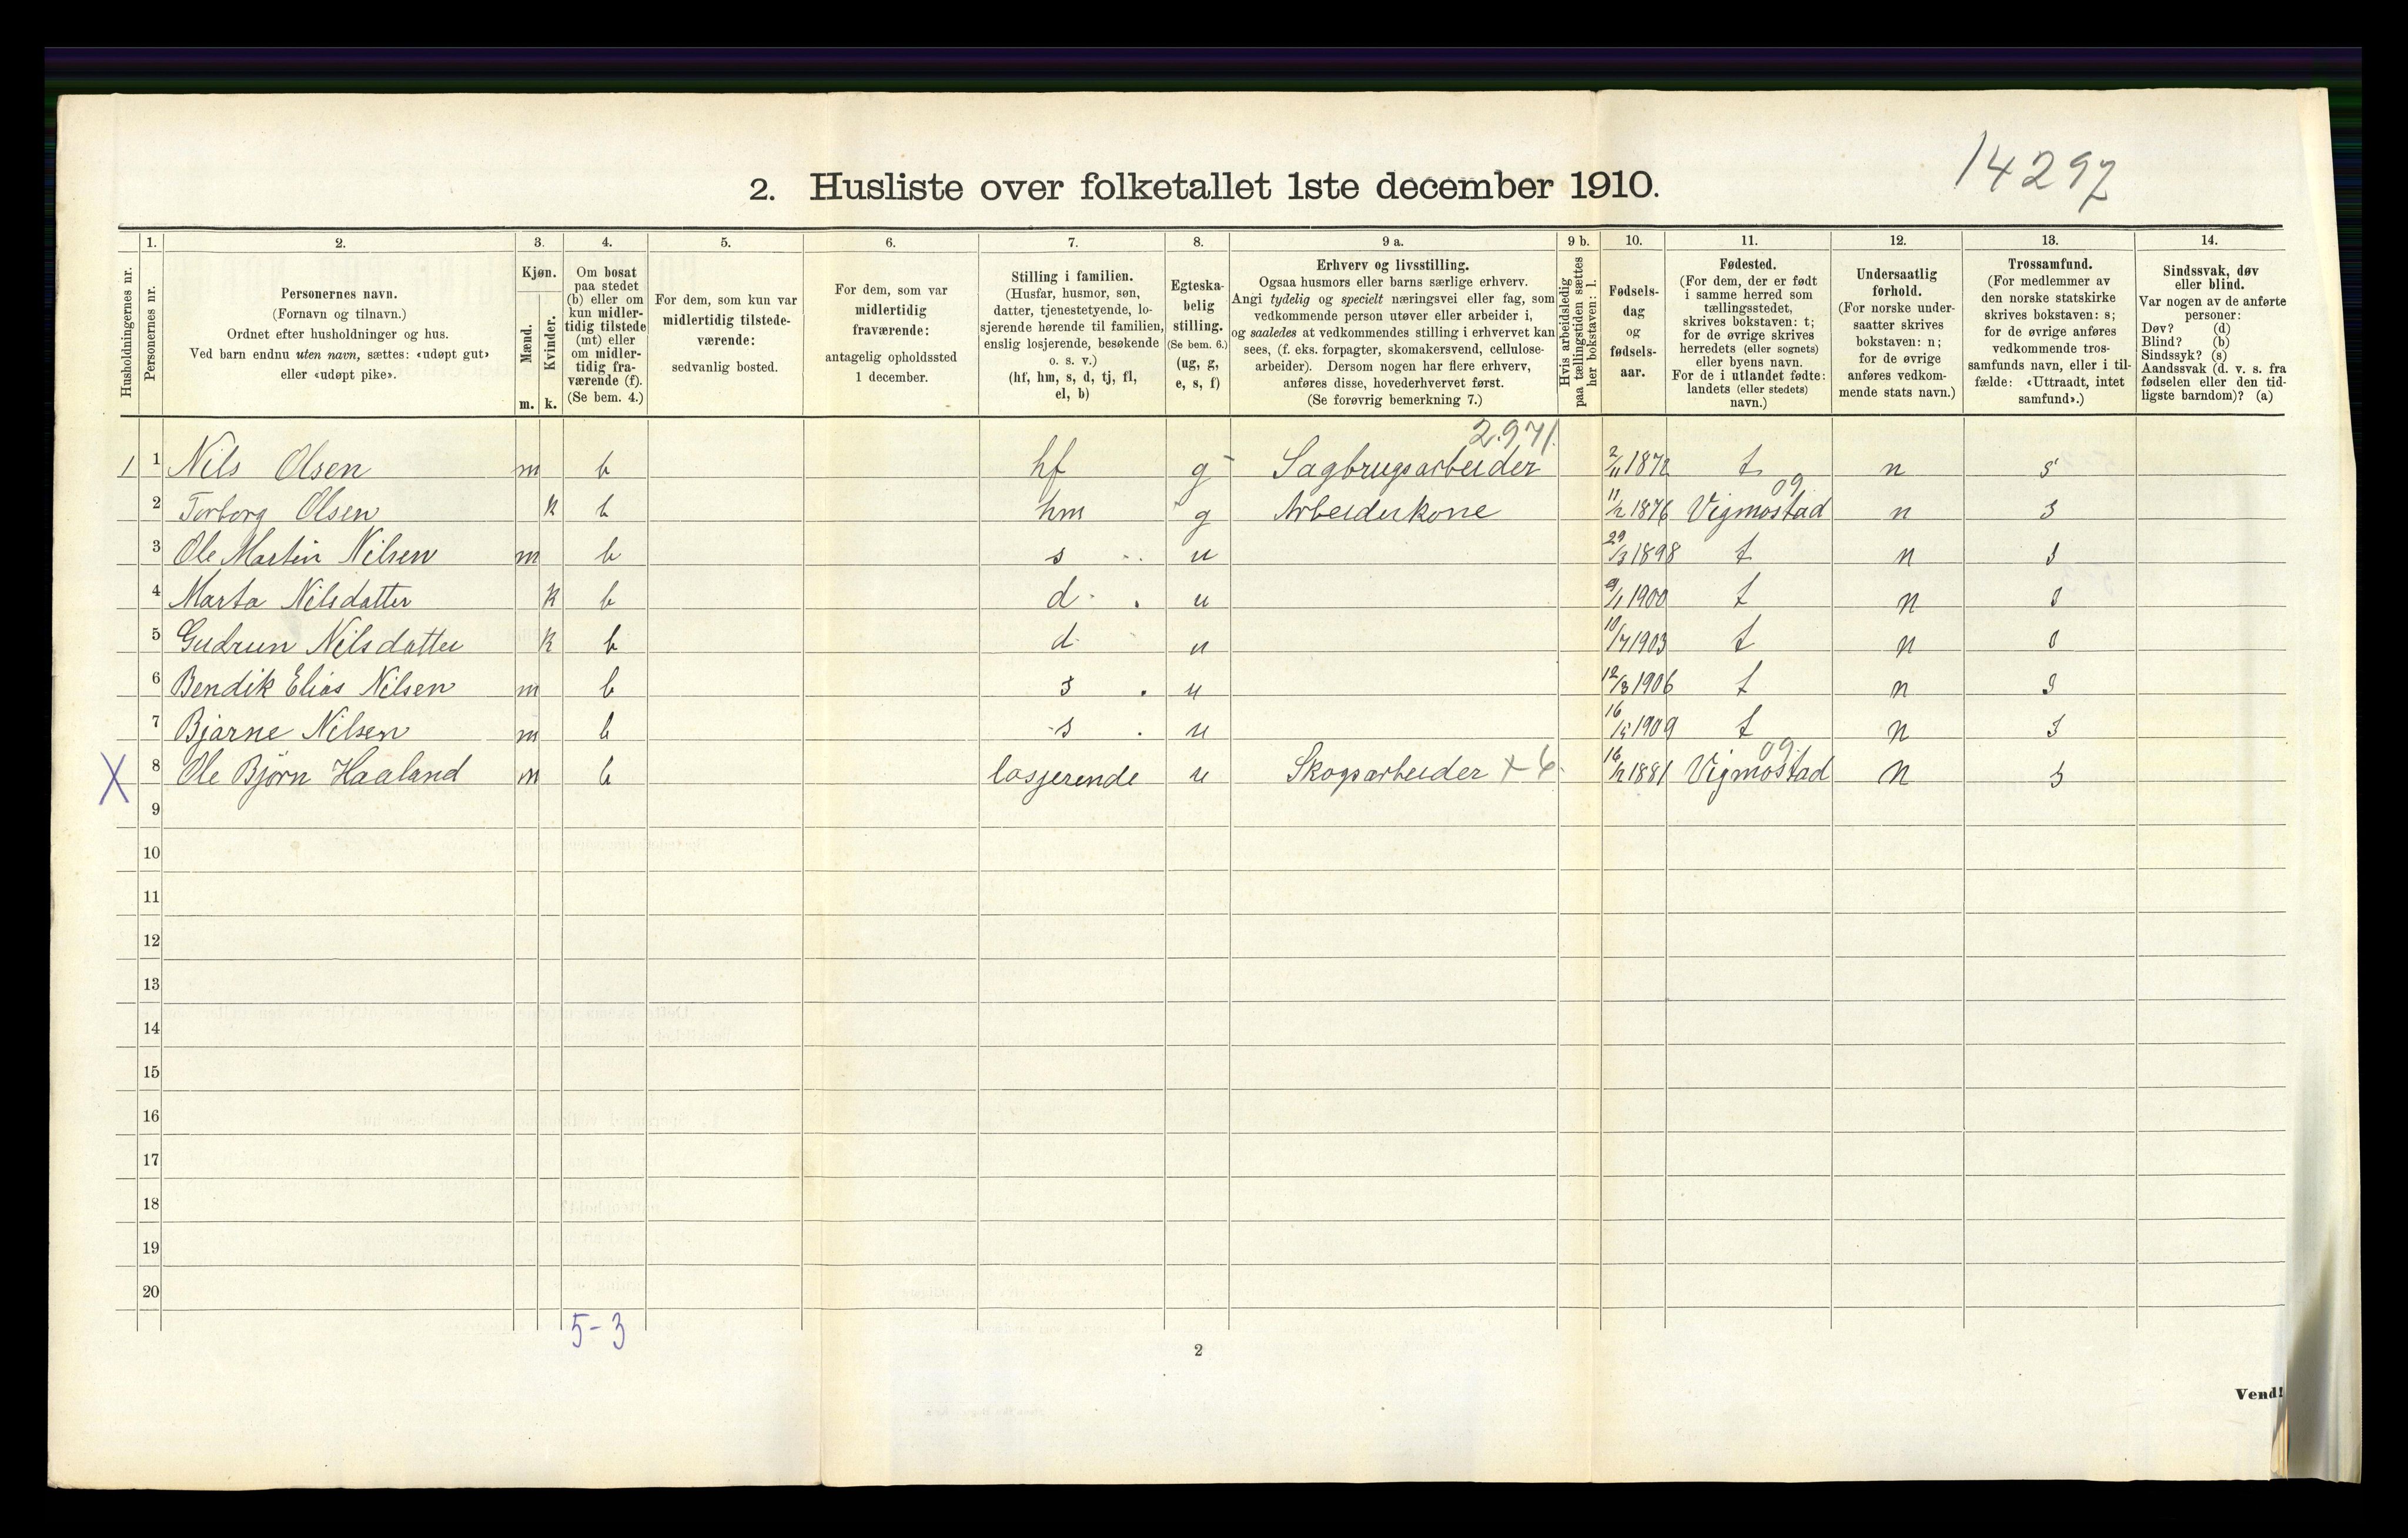 14297
2. Husliste over folketallet 1ste december 1910.
Husholdningernes nr.
1. Personernes nr.
2. Personernes navn. (Fornavn og tilnavn.) Ordnet efter husholdninger og hus. Ved barn endnu uten navn, sættes: «udøpt gut» eller «udøpt pike».
3. Kjøn. Mænd. m. Kvinder. k.
4. Om bosat paa stedet (b) eller om kun midlertidig tilstede (mt) eller om midlertidig fraværende (f). (Se bem. 4.)
5. For dem, som kun var midlertidig tilstedeværende: sedvanlig bosted.
6. For dem, som var midlertidig fraværende: antagelig opholdssted 1 december.
7. Stilling i familien. (Husfar, husmor, søn, datter, tjenestetyende, losjerende hørende til familien, enslig losjerende, besøkende o. s. v.) (hf, hm, s, d, tj, fl, el, b)
8. Egteskabelig stilling. (Se bem. 6.) (ug, g, e, s, f)
9 a. Erhverv og livsstilling. Ogsaa husmors eller barns særlige erhverv. Angi tydelig og specielt næringsvei eller fag, som vedkommende person utøver eller arbeider i, og saaledes at vedkommendes stilling i erhvervet kan sees, (f. eks. forpagter, skomakersvend, cellulosearbeider). Dersom nogen har flere erhverv, anføres disse, hovederhvervet først. (Se forøvrig bemerkning 7.)
9 b. Hvis arbeidsledig paa tællingstiden sættes her bokstaven: l.
10. Fødselsdag og fødselsaar.
11. Fødested. (For dem, der er født i samme herred som tællingsstedet, skrives bokstaven: t; for de øvrige skrives herredets (eller sognets) eller byens navn. For de i utlandet fødte: landets (eller stedets) navn.)
12. Undersaatlig forhold. (For norske undersaatter skrives bokstaven: n; for de øvrige anføres vedkommende stats navn.)
13. Trossamfund. (For medlemmer av den norske statskirke skrives bokstaven: s; for de øvrige anføres vedkommende trossamfunds navn, eller i tilfælde: «Uttraadt, intet samfund».)
14. Sindssvak, døv eller blind. Var nogen av de anførte personer: Døv? (d) Blind? (b) Sindssyk? (s) Aandssvak (d. v. s. fra fødselen eller den tidligste barndom)? (a)
2.971.
1 1 Nils Olsen m b hf g Sagbrugsarbeider 2/11 1872 t n s
2 Torborg Olsen k b hm g Arbeiderkone 11/2 1876 Vigmostad 09 n s
3 Ole Martin Nilsen m b s u 29/3 1898 t n s
4 Marta Nilsdatter k b d u 9/1 1900 t n s
5 Gudrun Nilsdatter k b d u 10/7 1903 t n s
6 Bendik Elias Nilsen m b s u 12/3 1906 t n s
7 Bjarne Nilsen m b s u 16/5 1909 t n s
X 8 Ole Bjørn Haaland m b losjerende u Skogsarbeider x 6. 16/2 1881 Vigmostad 09 n s
9
10
11
12
13
14
15
16
17
18
19
20
5-3
2
Vend!